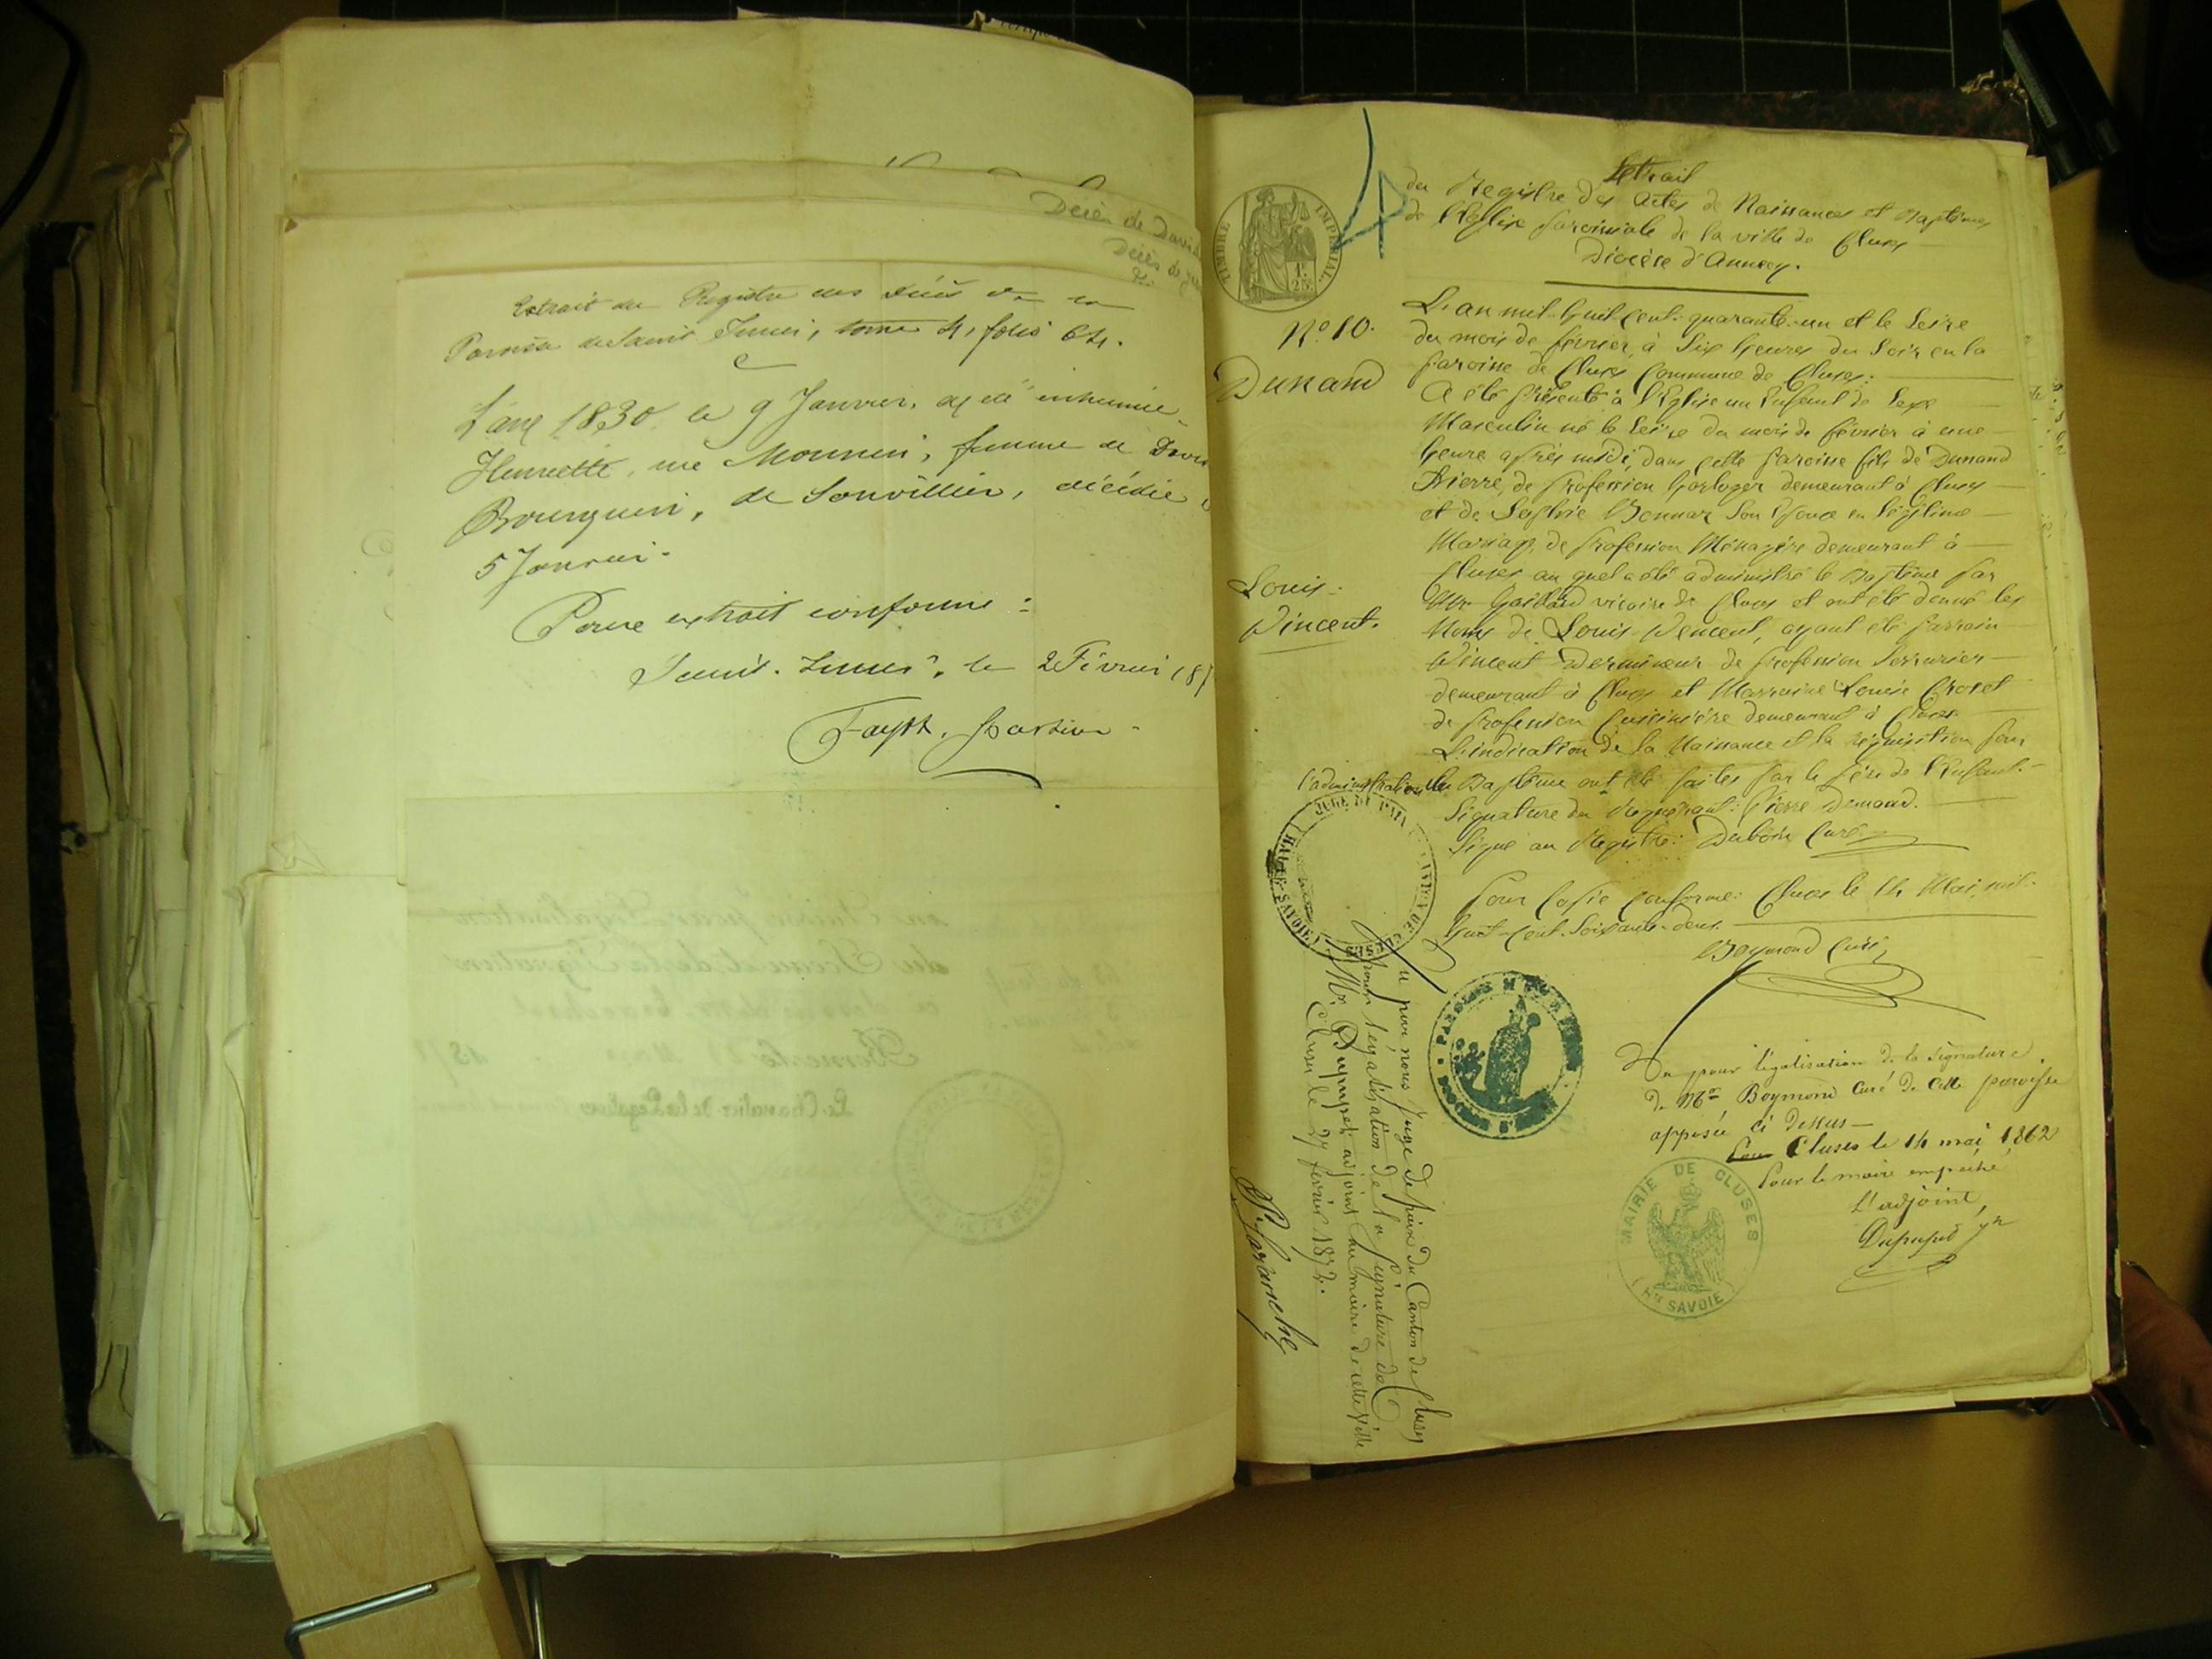 Décès de David
Décès de
Extrait du Registre des Décès de la
Paroisse de Saint Imier, tome 4, folio 64.
L'an 1830 le 9 Janvier, a été inhumée
Henriette, née Monnin, femme de David
Bourquin, de Sonvillier, décédée le
5 Janvier.
Pour extrait conforme :
Saint-Imier, le 2 Février 187
Fayot, pasteur
Extrait
du Registre des Actes de Naissances et Baptêmes
de l'Eglise paroissiale de la ville de Cluses
Diocèse d'Annecy.
TIMBRE IMPERIAL
1F. 25c.
N° 10.
Dunand
Louis-
Vincent.
L'an mil-huit-cent-quarante-un et le seize
du mois de février, à six heures du soir en la
paroisse de Cluses Commune de Cluses:
A été présenté à l'Eglise un Enfant de Sexe
Masculin né le seize du mois de février à une
heure après midi, dans cette paroisse fils de Dunand
Pierre, de profession horloger demeurant à Cluses
et de Sophie Bonnaz son Epouse en légitime
Mariage, de profession Ménagère demeurant à
Cluses, au quel a été administré le Baptême par
Mr. Gaillard vicaire de Cluses et ont été donné les
Noms de Louis-Vincent, ayant été parrain
Vincent Dermineur de profession Serrurier
demeurant à Cluses et Marraine Louise Crozet
de profession Cuisinière demeurant à Cluses
L'indication de la Naissance et la réquisition pour
l'administration du Baptême ont été faites par le père de l'Enfant.
Signature du Requérant: Pierre Dunand.
Signé au Registre: Dubois Curé
Pour Copie Conforme: Cluses le 14 Mai mil-
huit-cent-soixante-deux.
Boymond Curé
JUGE DE PAIX CANTON DE CLUSES
HAUTE-SAVOIE
Vu par nous Juge de paix du Canton de Cluses
pour légalisation de la signature de
Mr. Dupupet adjoint au maire de cette ville
Cluses le 27 février 1872.
Vu pour légalisation de la signature
de Mr. Boymond Curé de cette paroisse
apposée ci dessus
Cluses le 14 mai 1862
Pour le maire empêché
L'adjoint,
Dupupet
MAIRIE DE CLUSES
Hte SAVOIE